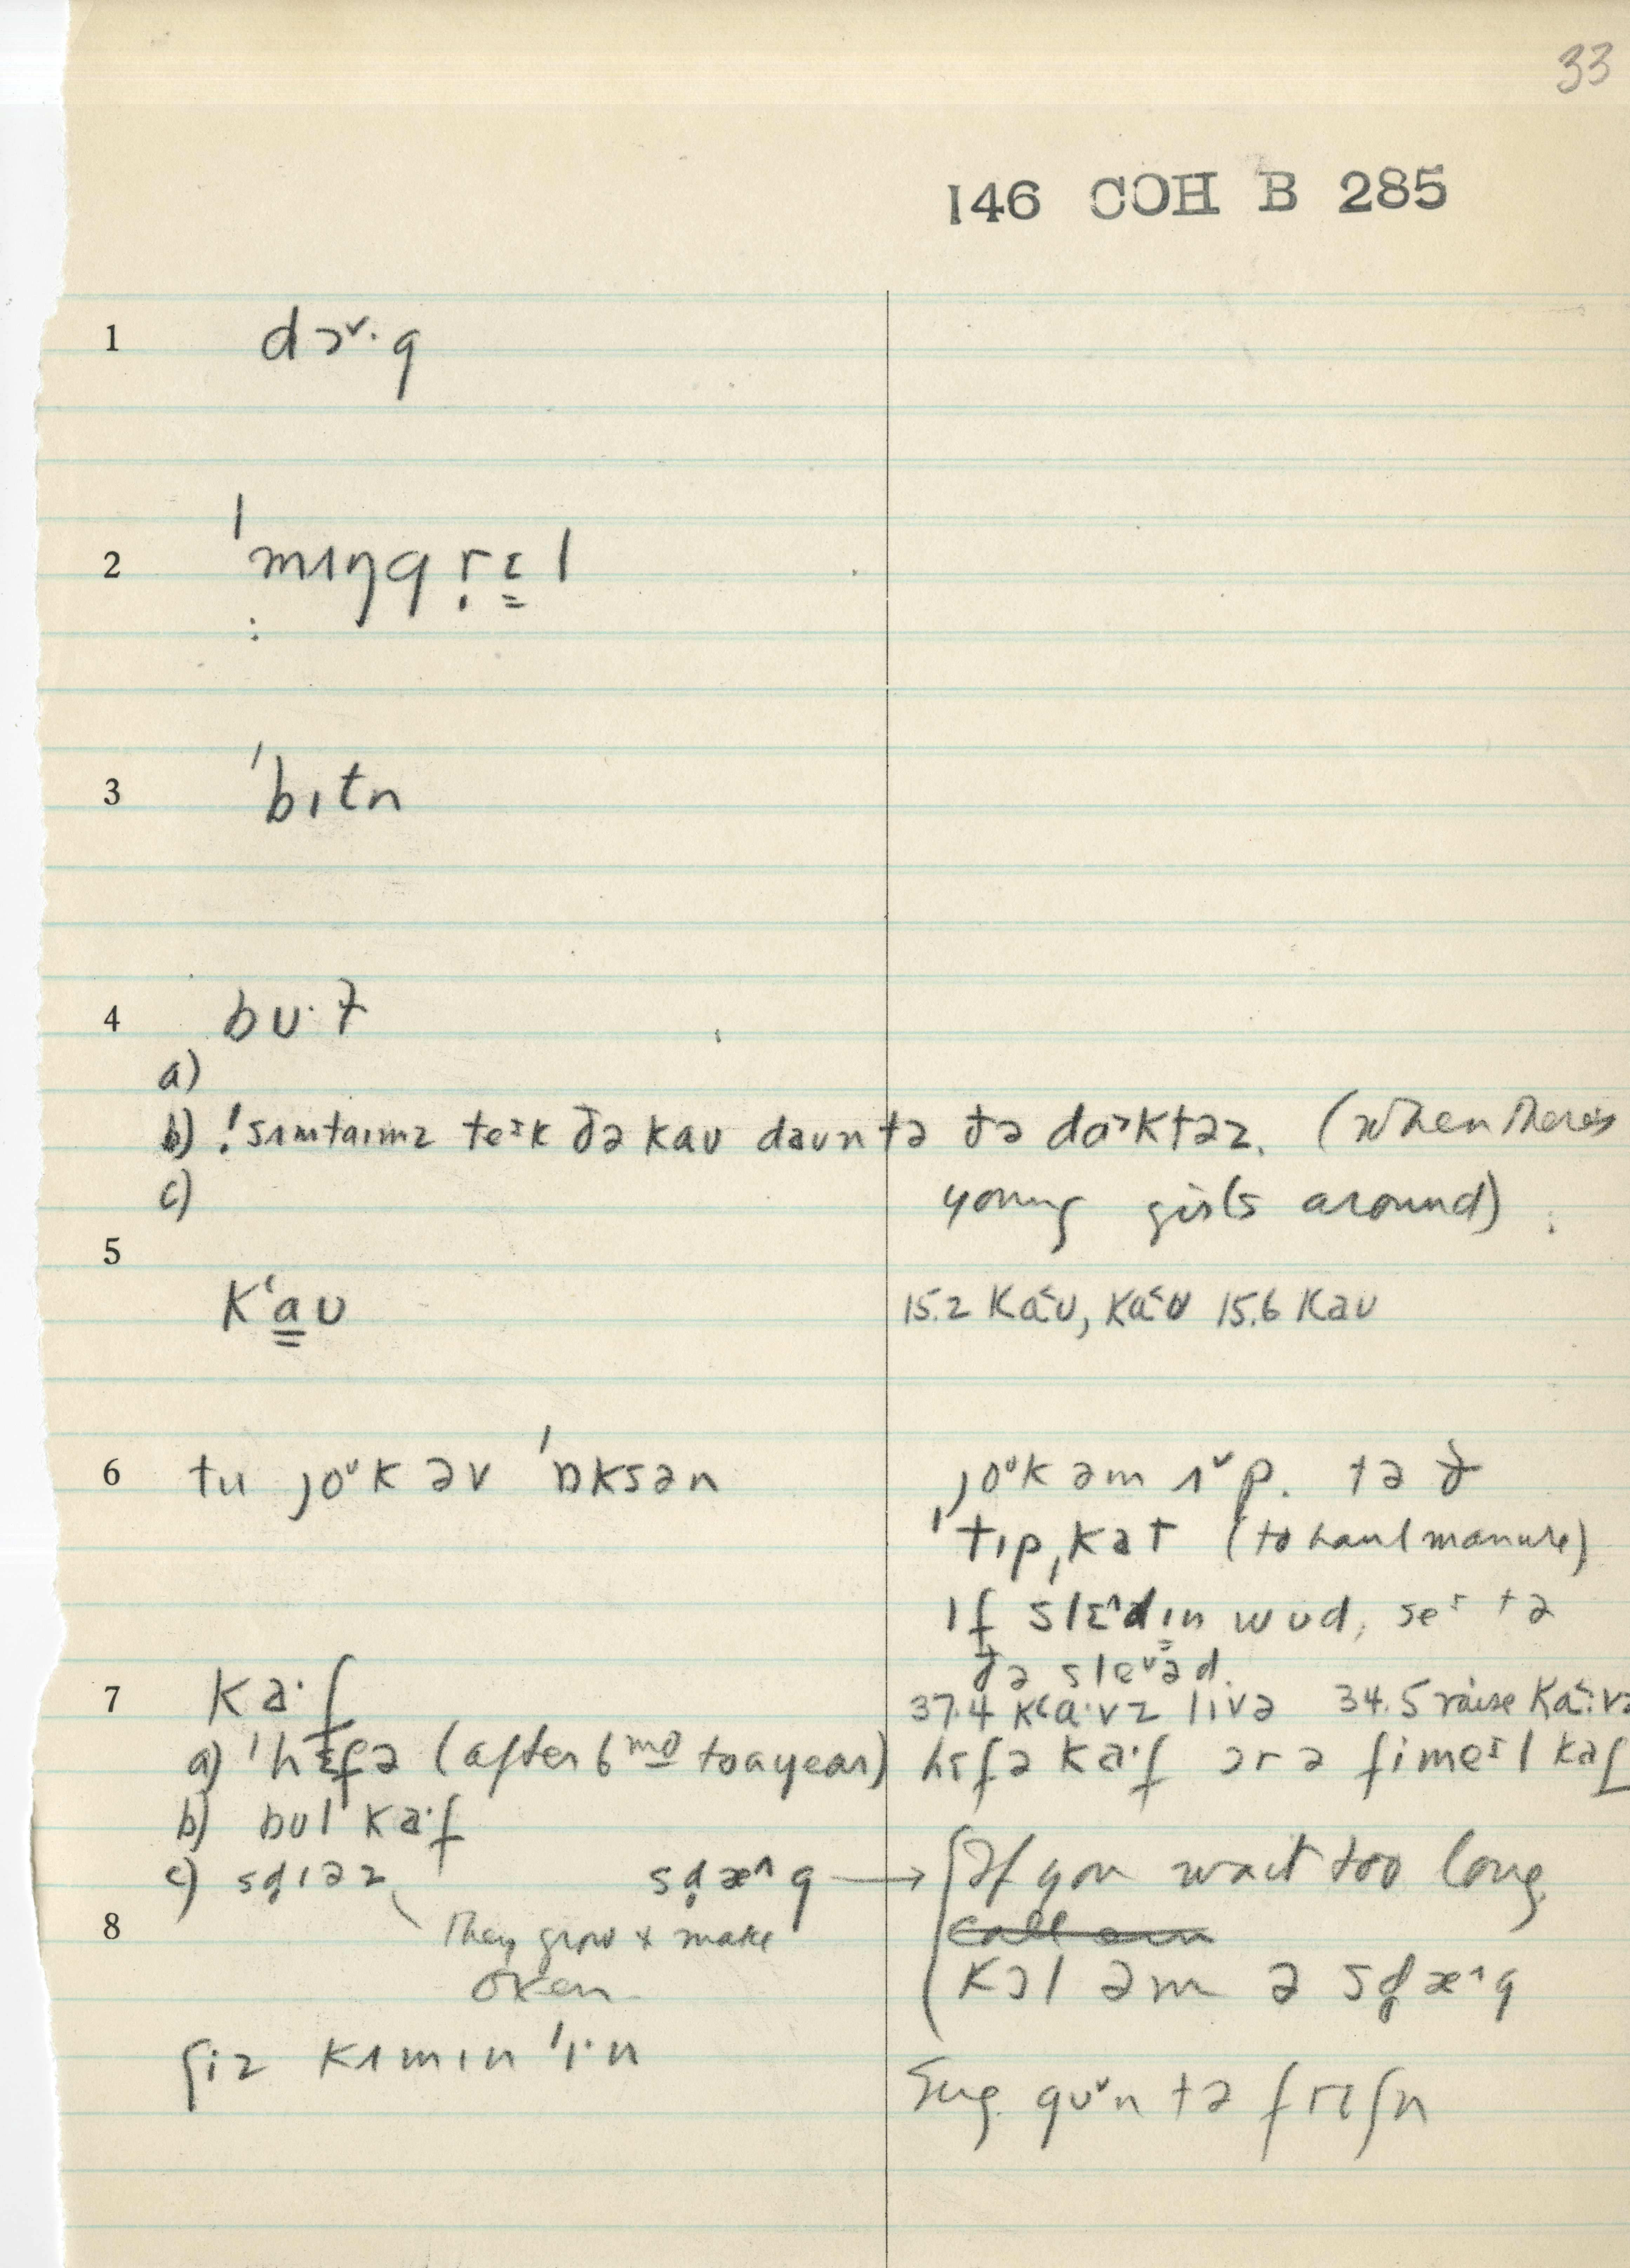 33
146 COH B 285
1 dɔˇ·g
2 ˈmʌŋgrɛl
3 ˈbɪtn
4 bʊ·ɫ
a)
b) !sʌmtaɪmz teᶦk ðə kaʊ daʊn tə ðə dɑᵊktəz. (when there's
c) young girls around)
5
kʻa̳ʊ 15.2 ka˂ʊ, ka˂ʊ 15.6 kaʊ
6 tu joᶷk əv ˈɒksən joᶷk əm ʌˇp. tə ð
ˈtɪpˌkɑt (to haul manure)
ɪf slɛ^dɪn wud, seᶦ tə
ðə sleˇəd.
7 ka·f 37.4 ka·vz lɪvə 34.5 raise ka·vz
a) ˈhɛfə (after 6 mo to a year) hɛfə ka·f ɔr ə fimeᶦl kaf
b) bʊl ka·f
c) sdɪəz sdæ^g → If you wait too long
8 They grow & make
oxen kɔl əm ə sdæ^g
ʃiz kʌmɪn ˈɪ·n Sug. guˇn tə frɛʃn